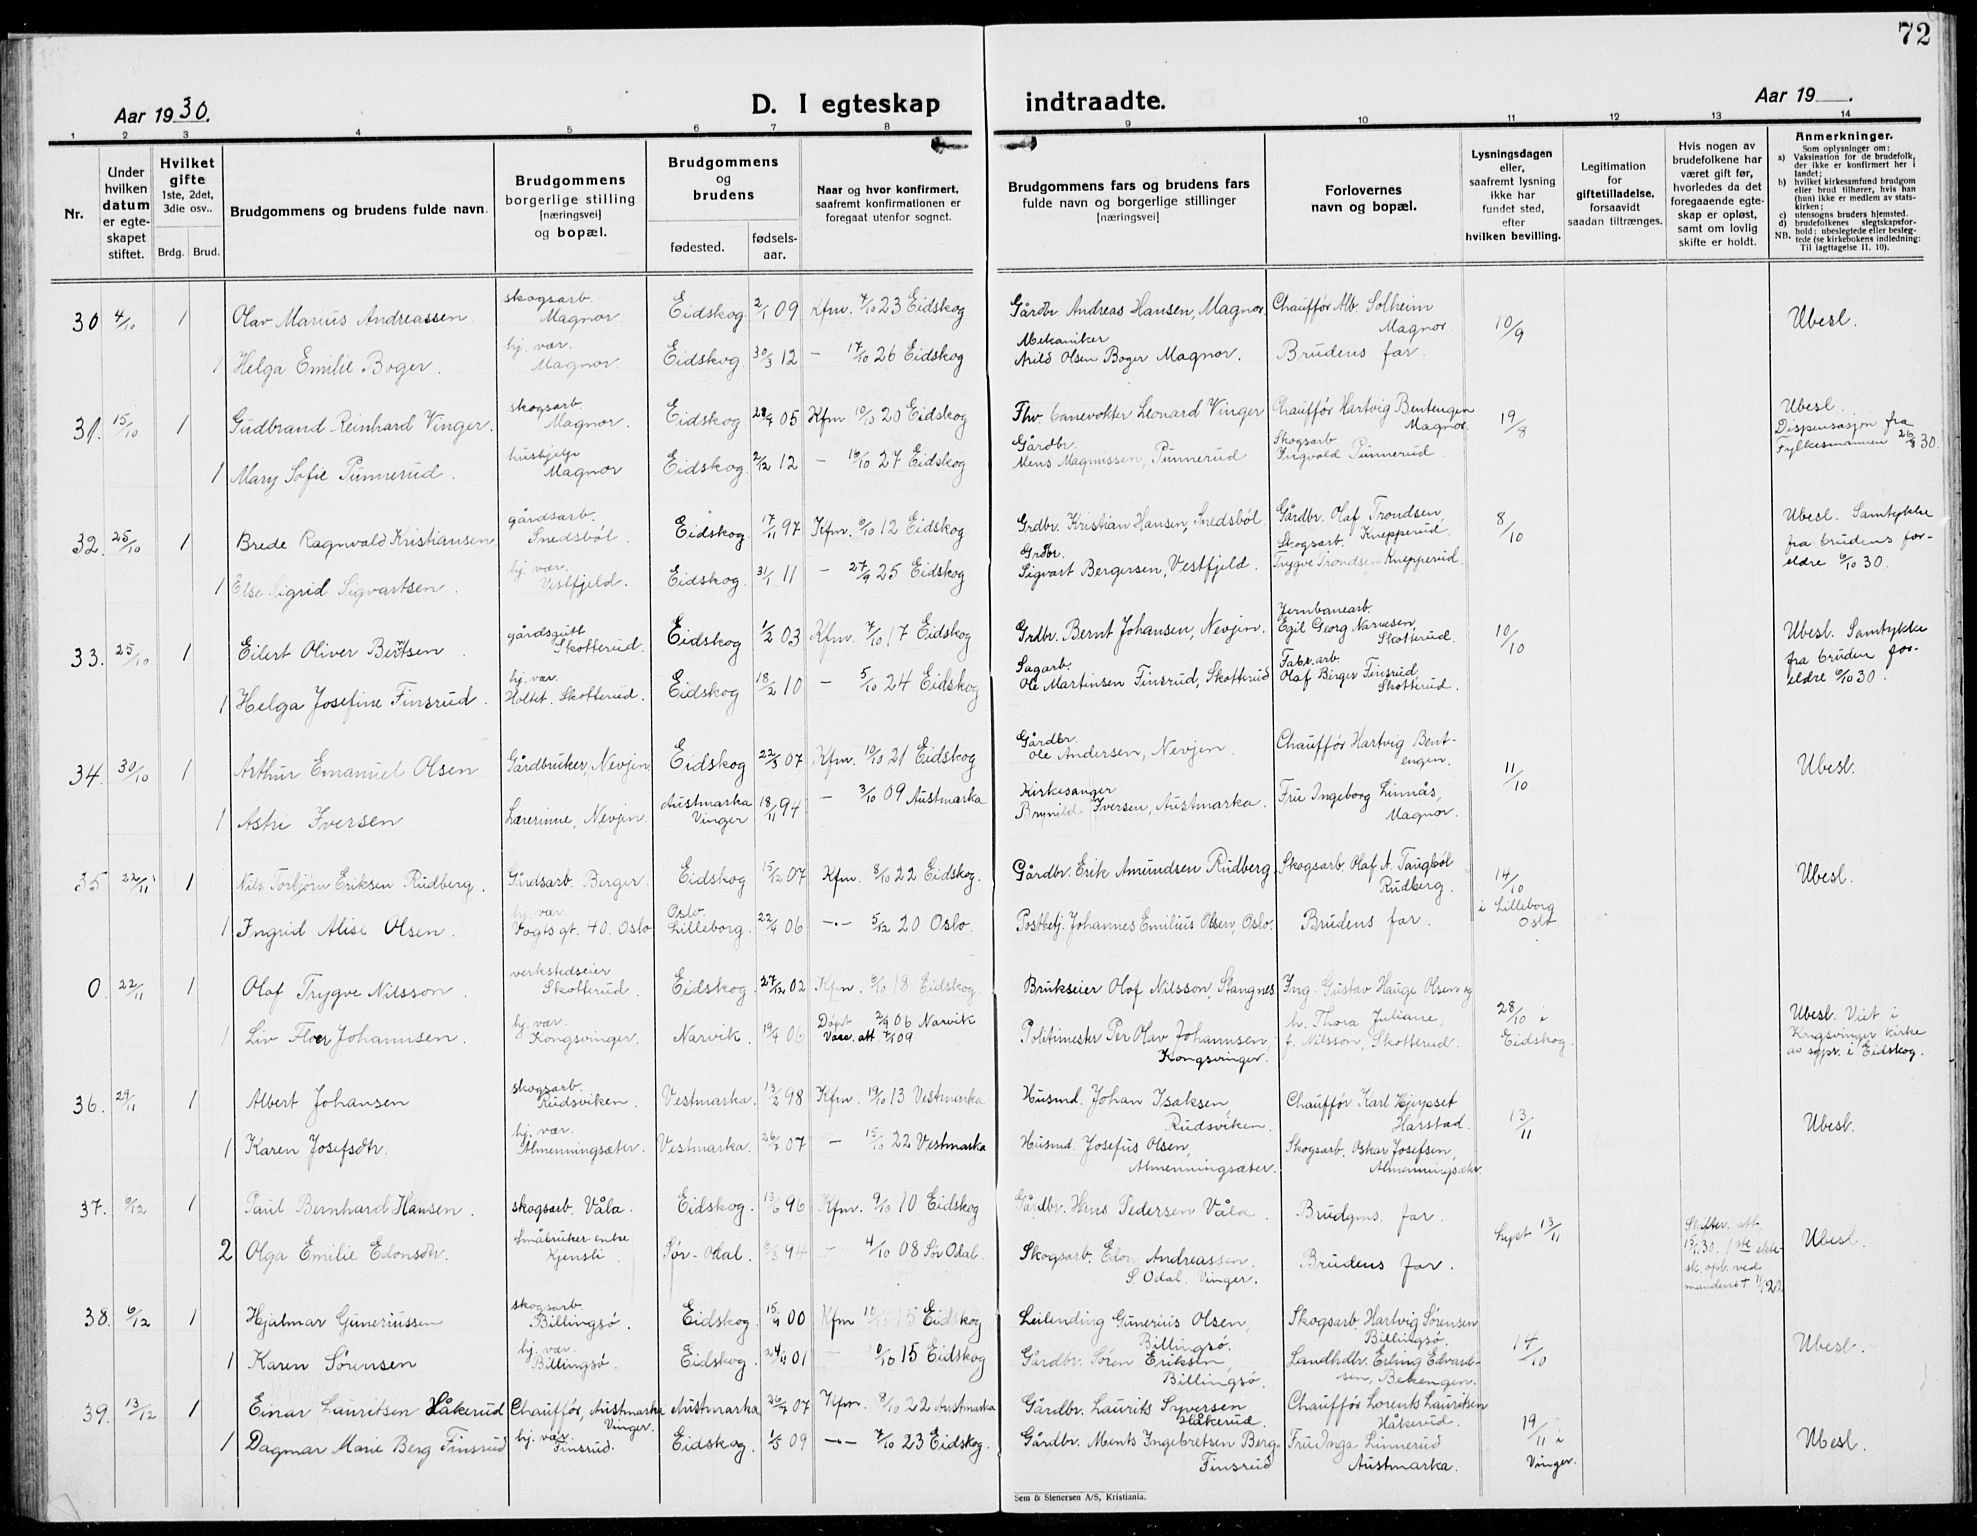 72
Aar 1930.
D. I egteskap indtraadte.
Aar 19 .
1 2 3 4 5 6 7 8 9 10 11 12 13 14
Nr.
Under hvilken datum er egteskapet stiftet.
Hvilket gifte 1ste, 2det, 3die osv..
Brdg. Brud.
Brudgommens og brudens fulde navn.
Brudgommens borgerlige stilling [næringsvei] og bopæl.
Brudgommens og brudens
fødested. fødselsaar.
Naar og hvor konfirmert, saafremt konfirmationen er foregaat utenfor sognet.
Brudgommens fars og brudens fars fulde navn og borgerlige stillinger [næringsvei]
Forlovernes navn og bopæl.
Lysningsdagen eller, saafremt lysning ikke har fundet sted, efter hvilken bevilling.
Legitimation for giftetilladelse, forsaavidt saadan tiltrænges.
Hvis nogen av brudefolkene har været gift før, hvorledes da det foregaaende egteskap er opløst, samt om lovlig skifte er holdt.
Anmerkninger.
Som oplysninger om:
a) Vaksination for de brudefolk, der ikke er konfirmert her i landet;
b) hvilket kirkesamfund brudgom eller brud tilhører, hvis han (hun) ikke er medlem av statskirken;
c) utensogns bruders hjemsted.
d) brudefolkenes slegtskapsforhold: ubeslegtede eller beslegtede (se kirkebokens indledning:
NB. Til iagttagelse II. 10).
30 4/10 1 Olav Marius Andreassen skogsarb. Magnor Eidskog 2/1 09 Kfm. 7/10 23 Eidskog Gårdbr. Andreas Hansen, Magnor Chauffør Alb. Solheim Magnor 10/9 Ubesl.
1 Helga Emilie Boger. hj. vær. Magnor. Eidskog 30/3 12 — 17/10 26 Eidskog Mekaniker Arild Olsen Boger Magnor. Brudens far.
31. 15/10 1 Gudbrand Reinhard Vinger. skogsarb. Magnor. Eidskog 28/4 05 Kfm 10/10 20 Eidskog Fhv. banevokter Leonard Vinger Chauffør Hartvig Bentengen Magnor. 19/8 Ubesl. Dispensasjon fra Fylkesmannen 26/8 30.
1 Mary Sofie Punnerud. hushjelp Magnor Eidskog 2/12 12 — 16/10 27 Eidskog Gårdbr. Mens Magnussen, Punnerud Skogsarb Ingvald Punnerud.
32. 25/10 1 Brede Ragnvald Kristiansen gårdsarb. Snedsbøl. Eidskog 17/11 97 Kfm. 6/10 12 Eidskog Grdbr. Kristian Hansen, Snedsbøl Gårdbr. Olaf Trondsen, Knepperud. 8/10 Ubesl. Samtykke fra brudens foreldre 6/10 30.
1 Else Sigrid Sigvartsen. hj. vær. Vestfjeld. Eidskog. 31/1 11 — 27/9 25 Eidskog Grdbr. Sigvart Bergersen, Vestfjeld. Skogsarb. Trygve Trondsen Knepperud.
33. 25/10 1 Eilert Oliver Berntsen. gårdsgutt Skotterud. Eidskog 1/2 03 Kfm. 7/10 17 Eidskog Grdbr. Bernt Johansen, Nevjen. Jernbanearb. Egil Georg Narvesen, Skotterud. 10/10 Ubesl. Samtykke fra bruden foreldre 6/10 30.
1 Helga Josefine Finsrud. hj. vær. Holtet. Skotterud. Eidskog 18/2 10 — 5/10 24 Eidskog Sagarb. Ole Martinsen Finsrud, Skotterud Fabr.arb. Olaf Birger Finsrud, Skotterud.
34. 30/10 1 Arthur Emanuel Olsen Gårdbruker, Nevjen. Eidskog 22/3 07 Kfm. 10/10 21 Eidskog Gårdbr. Ole Andersen, Nevjen. Chauffør Hartvig Bentengen. 11/10 Ubesl.
1 Astri Iversen Lærerinne, Nevjen. Austmarka Vinger 18/11 94 — 3/10 09 Austmarka Kirkesanger Brynild Iversen, Austmarka. Fru Ingeborg Linnås, Magnor.
35 22/11 1 Nils Torbjørn Eriksen Rudberg. Gårdsarb. Berger. Eidskog 15/12 07 Kfm. 8/10 22 Eidskog. Gårdbr. Erik Amundsen Rudberg Skogsarb. Olaf A. Taugbøl Rudberg. 14/10 i Lilleborg Oslo Ubesl.
1 Ingrid Alise Olsen. hj. vær. Vogts gt. 40. Oslo Oslo. Lilleborg. 22/4 06 —"— 5/12 20 Oslo. Postbetj. Johannes Emilius Olsen, Oslo. Brudens far.
0. 22/11 1 Olaf Trygve Nilsson. verkstedseier Skotterud. Eidskog. 27/12 02 Kfm. 6/10 18 Eidskog. Brukseier Olof Nilsson, Stangnes Ing. Gustav Hauge Olsen og h. Thora Juliane, f. Nilsson, Skotterud. 28/10 i Eidskog. Ubesl. Viet i Kngsvinger kirke av sgpr. i Eidskog.
1 Liv Floer Johannsen. hj. vær. Kongsvinger. Narvik. 19/4 06 Døpt 2/9 06 Narvik Vacc. att. 7/1 09 Politimester Per Olav Johannsen, Kongsvinger.
36. 29/11 1 Albert Johansen skogsarb. Rudsviken. Vestmarka. 13/2 98 Kfm. 19/10 13 Vestmarka Husmd. Johan Isaksen Rudsviken. Chauffør Karl Hjepset Harstad. 13/11 Ubesl.
1 Karen Josefsdtr. hj. vær. Almenningsæter. Vestmarka. 26/7 07 — 15/10 22 Vestmarka Husmd. Josefus Olsen, Almenningsæter. Skogsarb. Oskar Josefsen, Almenningsætr.
37. 6/12 1 Paul Bernhard Hansen. skogsarb. Våla. Eidskog. 13/6 96 Kfm. 9/10 10 Eidskog Gårdbr. Hans Pedersen Våla. Brudgms. far. Lyst 13/11 Ubesl.
2 Olga Emilie Edonsdtr. Småbruker enke Kjensli Sør-Odal. 6/3 94 — 4/10 08 Sør Odal. Skogsarb. Edon Andreassen. S. Odal. Vinger. Brudens far. Skifter. att. 15/11 30. 1ste ektesk. opl. ved mandens +
38. 6/12 1 Hjalmar Guneriussen skogsarb. Billingsø. Eidskog. 15/9 00 Kfm 10/10 15 Eidskog Leilending Gunerius Olsen, Billingsø. Skogsarb. Hartvig Sørensen Billingsø. 14/10 Ubesl.
1 Karen Sørensen hj. vær. Billingsø. Eidskog. 24/4 01 — 10/10 15 Eidskog Gårdbr. Søren Eriksen, Billingsø. Landhdlr. Erling Edvardsen, Bekengen.
39. 13/12 1 Einar Lauritsen Håkerud Chauffør, Austmarka Vinger. Austmarka 26/7 07 Kfm. 8/10 22 Austmarka Gårdbr. Laurits Syversen Håkerud. Chauffør Lorents Lauritsen Håkerud. 19/11 i Vinger. Ubesl.
1 Dagmar Marie Berg Finsrud hj. vær. Finsrud. Eidskog. 1/5 09 —"— 7/10 23 Eidskog. Gårdbr. Ments Ingebretsen Berg-Finsrud Fru Inga Linnerud Austmarka.
Sem & Stenersen A/S, Kristiania.